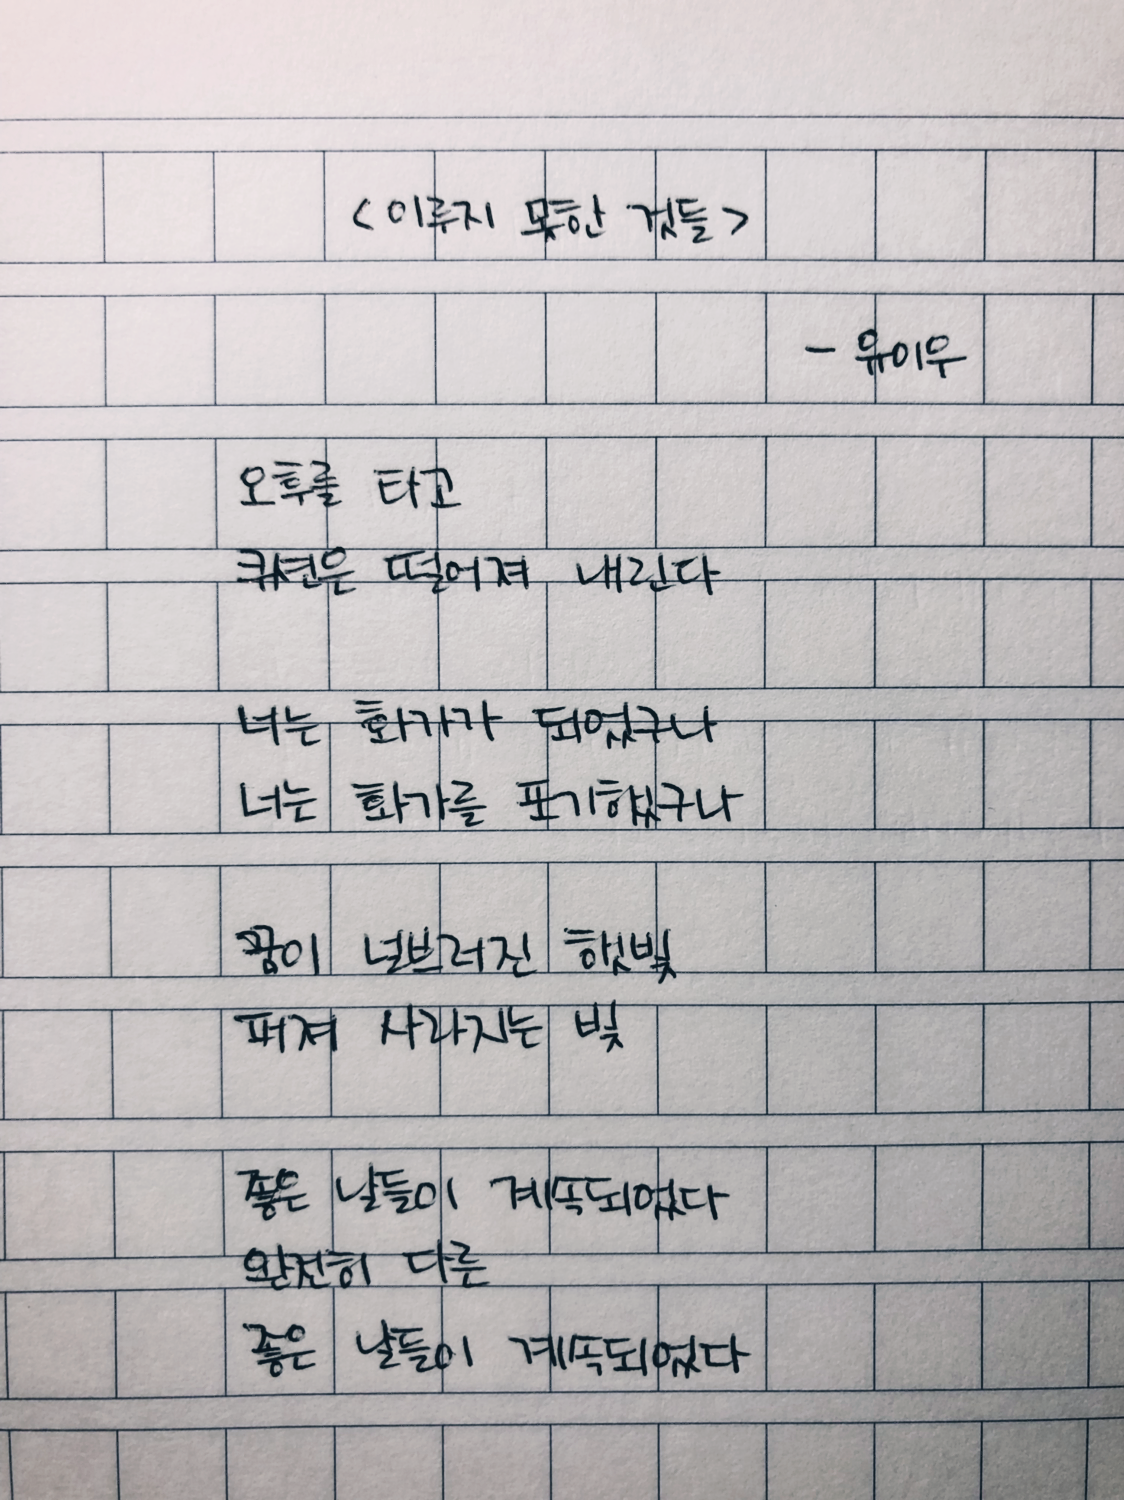 <이루지 못한 것들>
- 유이우
오후를 타고
큐션은 떨어져 내린다
너는 화가가 되었구나
너는 화가를 포기했구나
꿈이 널브러진 햇빛
퍼져 사라지는 빛
좋은 날들이 계속되었다
완전히 다른
좋은 날들이 계속되었다